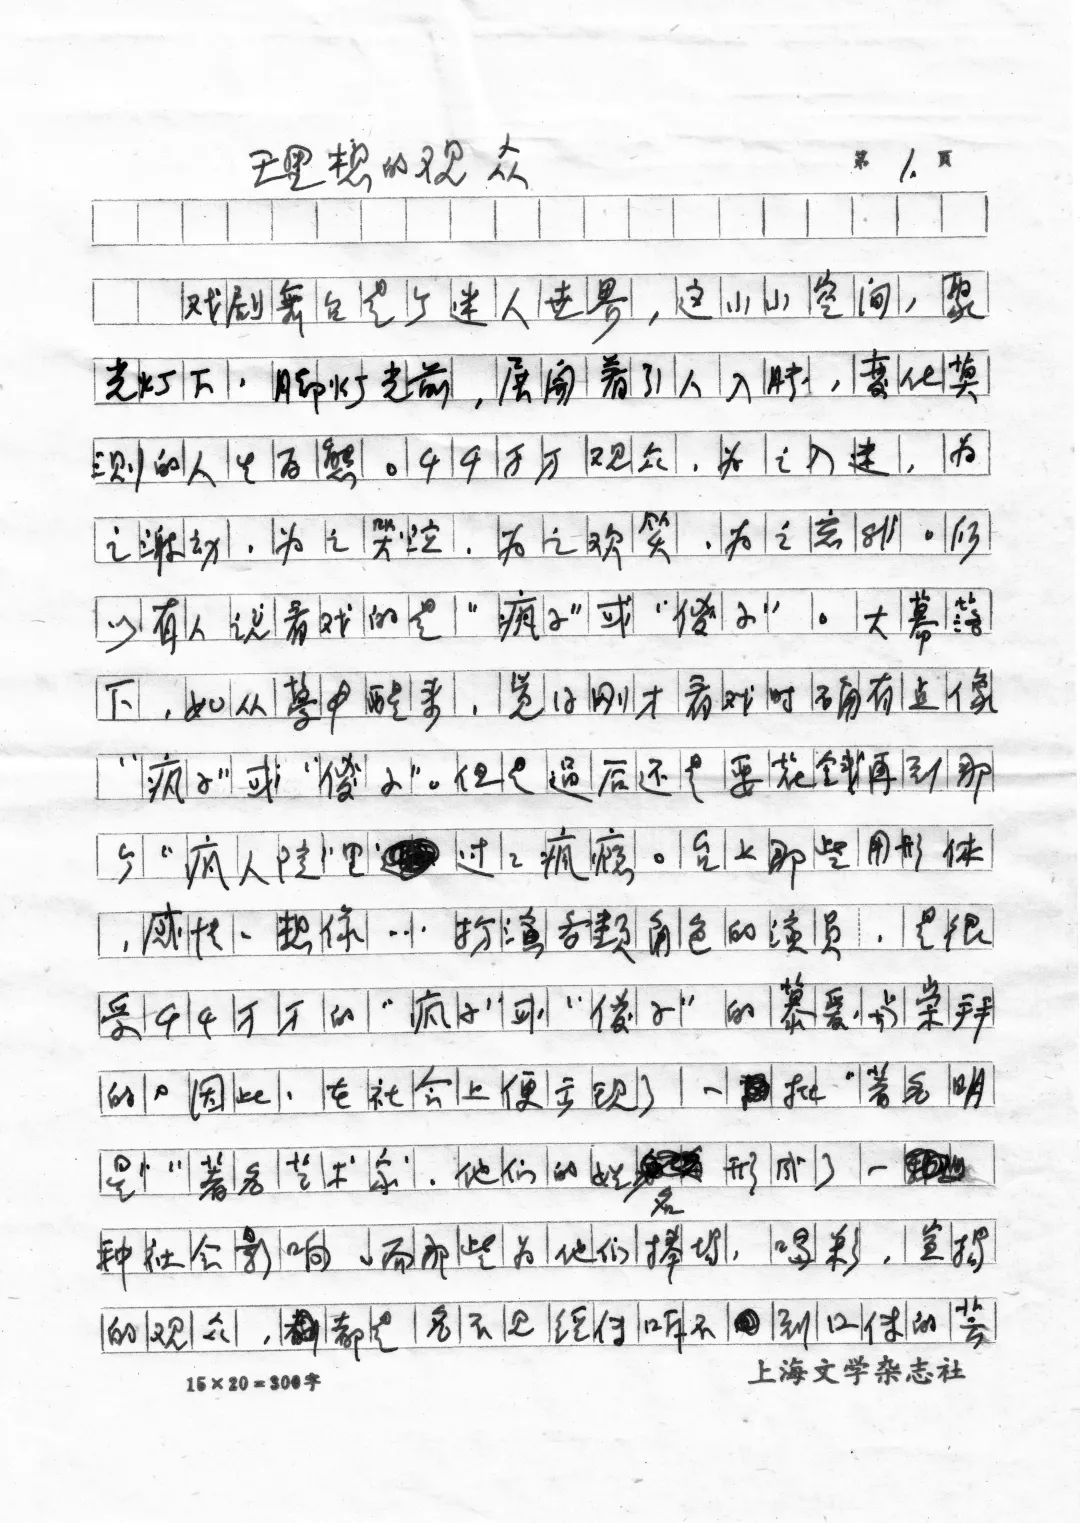 理想的观众
第 1. 页
戏剧舞台是个迷人世界，这小小空间，聚
光灯下，脚灯光前，展开着引人入胜，变化莫
测的人生百态。千千万万观众，为之入迷，为
之激动，为之哭泣，为之欢笑，为之忘我。所
以有人说看戏的是“疯子”或“傻子”。大幕落
下，如从梦中醒来，觉得刚才看戏时确有点像
“疯子”或“傻子”。但是过后还是要花钱再到那
个“疯人院”里过过疯瘾。台上那些用形体
，感情、想像…扮演各类角色的演员，是很
受千千万万的“疯子”或“傻子”的慕爱与崇拜
的。因此，在社会上便出现了一批“著名明
星”“著名艺术家，他们的姓名形成了一
种社会影响，而那些为他们捧场，喝彩，宣扬
的观众，都是名不见经传听不到口传的芸
15×20=300字
上海文学杂志社